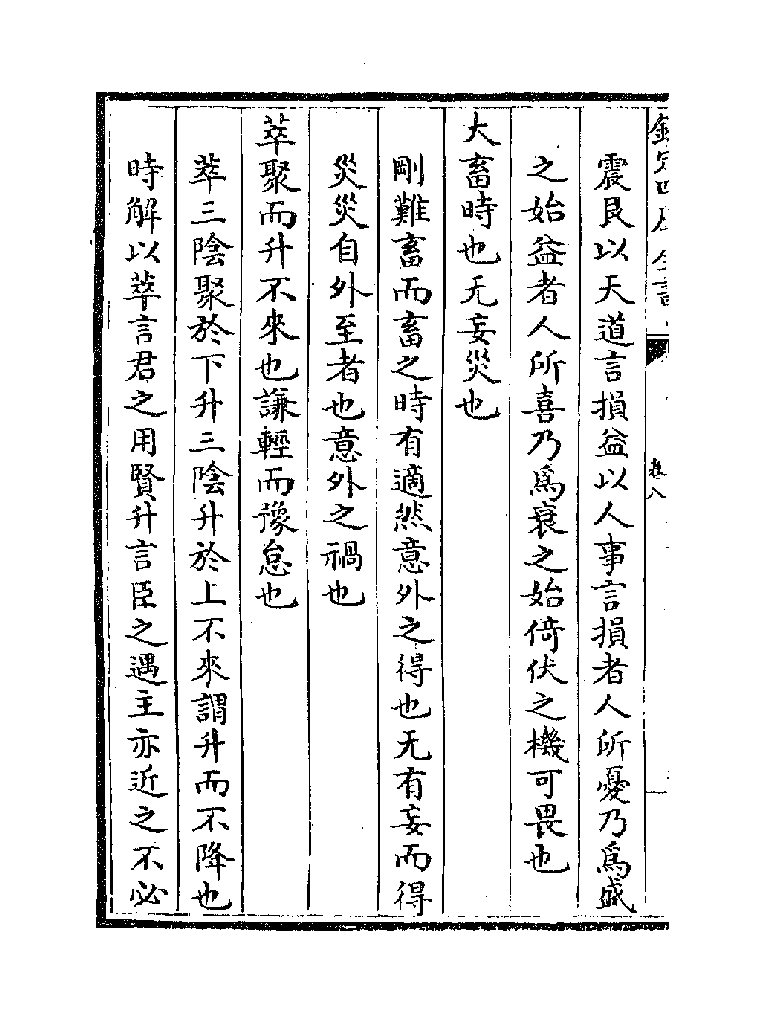 震艮以天道言損益以人事言損者人所憂乃爲盛
之始益者人所喜乃爲衰之始倚伏之機可畏也
大畜時也无妄災也
剛難畜而畜之時有適然意外之得也无有妄而得
災災自外至者也意外之禍也
萃聚而升不來也謙輕而豫怠也
萃三陰聚於下升三陰升於上不來謂升而不降也
時解以萃言君之用賢升言臣之遇主亦近之不必
卷八